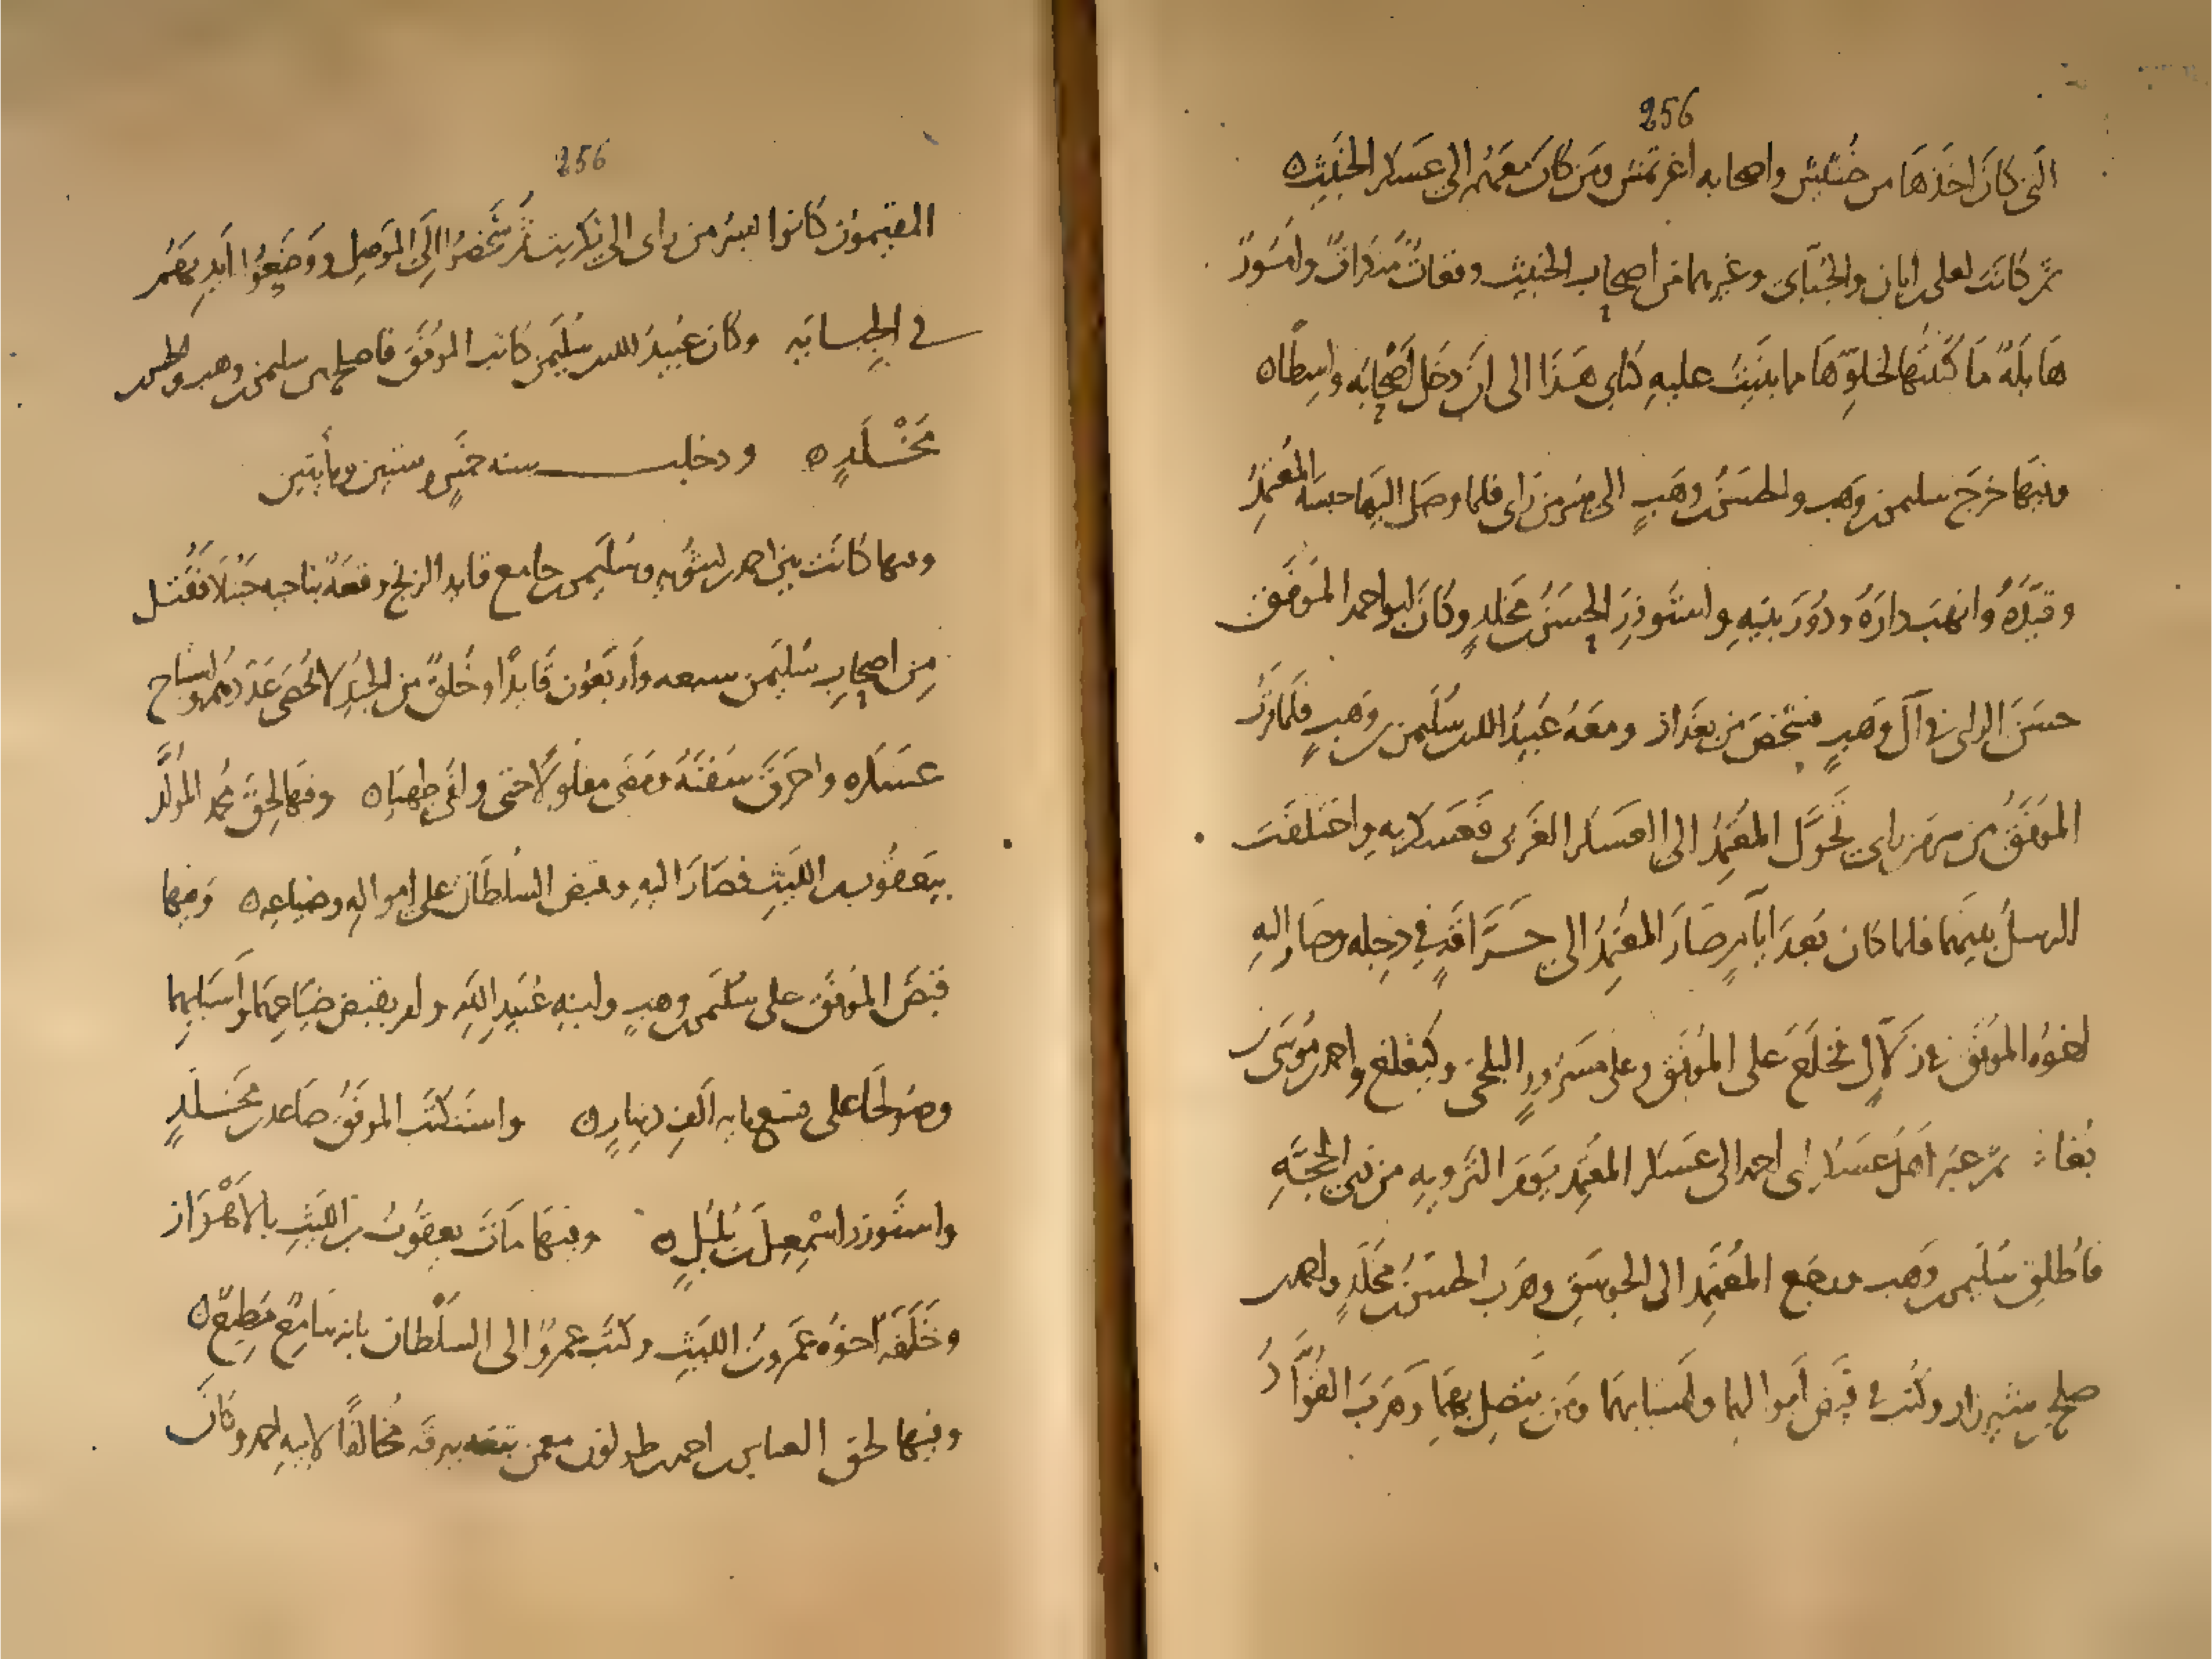 256
التي كان اخذها من خشيش واصحابه اغرتمش ومن كان معه الى عسكر الخبيث ه
ثم كانت لعلي بن ابان والجبائي وغيرهما من اصحاب الخبيث وقعات منكرات وامور
هايلة ما كتبتها لخلوها مما بنيت عليه كتابي هذا الى ان دخل اصحابه واسطا ه
وفيها خرج سليمن بن وهب والحسن بن وهب الى سر من راى فلما وصل اليها حبسه المعتمد
وقيده وانهب داره ودور بنيه واستوزر الحسن بن مخلد وكان ابو احمد الموفق
حسن الراي في آل وهب فشخص من بغداد ومعه عبيد الله بن سليمن بن وهب فلما قرب
الموفق من سر من راى تحول المعتمد الى العسكر الغربي فعسكر به واختلفت
الرسل بينهما فلما كان بعد ايام صار المعتمد الى حراقة في دجله وصار اليه
اخوه الموفق في زلال فخلع على الموفق وعلى مسرور البلخي وكيغلغ واحمد بن موسى بن
بغا ثم عبر اهل عسكر ابي احمد الى عسكر المعتمد يوم الترويه من ذي الحجة
فاطلق سليمن بن وهب ورجع المعتمد الى الجوسق وهرب الحسن بن مخلد واحمد بن
صلح بن شيرزاد وكتب في قبض اموالهما واسبابهما ومن يتصل بهما وهرب القواد
256
المقيمون كانوا بسر من راى الى تكريت ثم شخصوا الى الموصل ووضعوا ايديهم
في الجبايه وكان عبيد الله بن سليمن كاتب الموفق فاصلح بين سليمن بن وهب والحسن بن
مخلد ه ودخلت سنه خمس وستين ومأيتين
وفيها كانت بين احمد بن ليثويه وسليمن بن جامع قايد الزنج وقعة بناحيه جنبلا فقتل
من اصحاب سليمن سبعه واربعون قايدا وخلق من الجند لا تحصى عددهم واستباح
عسكره واحرق سفنه ومضى مفلولا حتى وافى طهيثا ه وفيها لحق محمد المولد
بيعقوب بن الليث فصار اليه وقبض السلطان على امواله وضياعه ه وفيها
قبض الموفق على سليمن بن وهب وابنه عبيد الله وامر بقبض ضياعهما واسبابهما
وصولحا على تسع مايه الف دينار ه واستكتب الموفق صاعد بن مخلد
واستوزر اسمعيل بن بلبل ه وفيها مات يعقوب بن الليث بالاهواز
وخلفه اخوه عمرو بن الليث وكتب عمرو الى السلطان بانه سامع مطيع ه
وفيها لحق العباس بن احمد بن طولون معمن تبعه ببرقة مخالفا لابيه احمد وكان